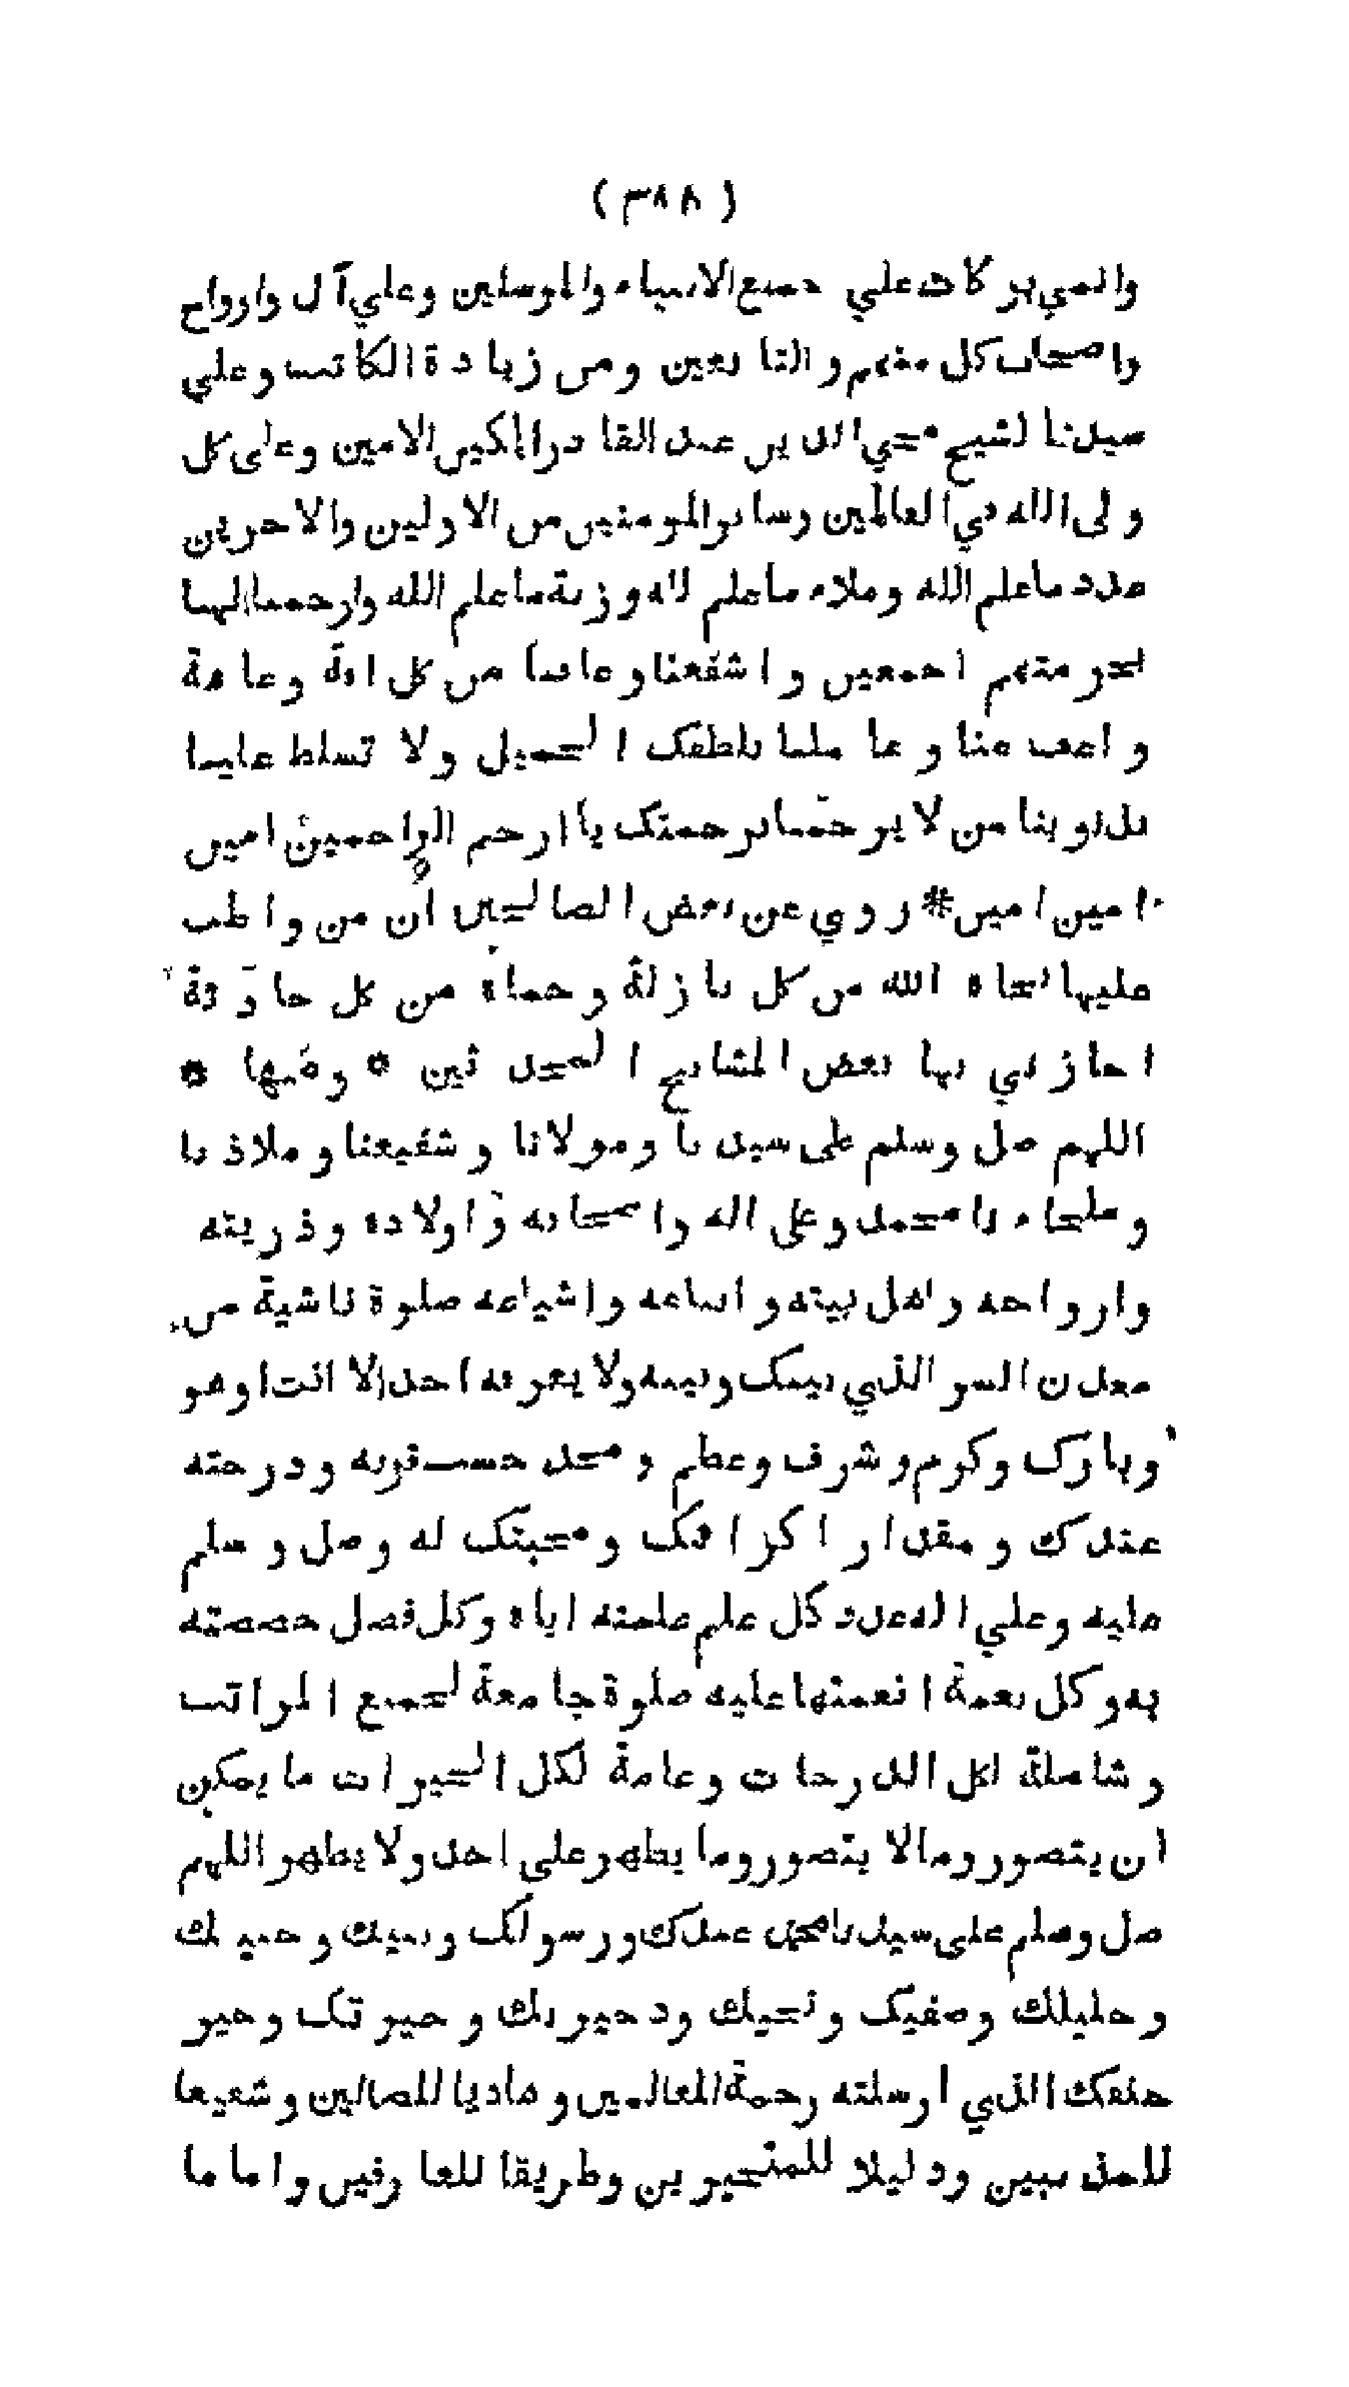 ( ٣٨٨ )
وانمي بركات علي جميع الانبياء والمرسلين وعلي آل وازواج
واصحاب كل منهم والتابعين ومن زيادة الكاتب وعلي
سيدنا الشيخ محي الدين عبد القادر المكين الامين وعلى كل
ولى الله في العالمين وسائر المومنين من الاولين والاخرين
عدد ما علم الله وملاء ما علم الله وزنة ما علم الله وارحمنا الهنا
بحرمتهم اجمعين واشفعنا وعافنا من كل افة وعاهة
واعف عنا وعاملنا بلطفك الجميل ولا تسلط علينا
بذنوبنا من لا يرحمنا برحمتك يا ارحم الراحمين امين
امين امين * روي عن بعض الصالحين ان من واظب
عليها نجاه الله من كل نازلة وحماه من كل حادثة
اجازني بها بعض المشايخ المحدثين * ومنها *
اللهم صل وسلم على سيدنا ومولانا وشفيعنا وملاذنا
وملجاءنا محمد وعلى اله واصحابه واولاده وذريته
وازواجه واهل بيته واتباعه واشياعه صلوة ناشية من
معدن السر الذي بينك وبينه ولا يعرفه احد الا انت اوهو
وبارك وكرم وشرف وعظم ومجد حسب قربه ودرجته
عندك ومقدار اكرامك ومحبتك له وصل وسلم
عليه وعلي اله عدد كل علم علمته اياه وكل فضل خصصته
به وكل نعمة انعمتها عليه صلوة جامعة لجميع المراتب
وشاملة لكل الدرجات وعامة لكل الخيرات ما يمكن
ان يتصور وما لا يتصور وما يظهر على احد ولا يظهر اللهم
صل وسلم على سيدنا محمد عبدك ورسولك ونبيك وحبيبك
وخليلك وصفيك ونجيك وذخيرتك وخيرتك وخير
خلقك الذي ارسلته رحمة للعالمين وهاديا للضالين وشفيعا
للمذنبين ودليلا للمتحيرين وطريقا للعارفين واماما